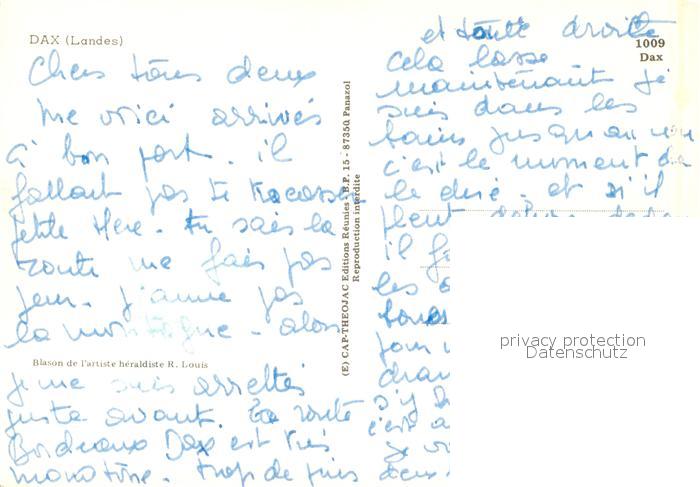 DAX (Landes)
Chers tous deux
me voici arrivés
à bon port. il
fallait pas te tracasser
petite Mère. Tu sais la
route me fais pas
peur. j'aime pas
la montagne - alors
Blason de l'artiste héraldiste R. Louis
je me suis arrettés
juste avant. La route
Bordeaux Dax est très
monotone. trop de pins
(E) CAP-THEOJAC Editions Réunies - B.P. 15 - 87350 Panazol
Reproduction interdite
1009
Dax
et toute droite
cela lasse
maintenant je
suis dans les
bains jusqu'au cou
c'est le moment de
le dire. et s'il
pleut
il
les
bonnes
pour
s'il
c'est
je
deux.
privacy protection
Datenschutz